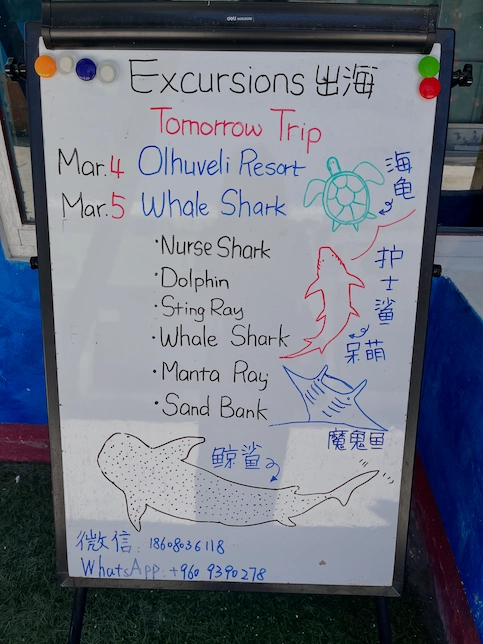 deli
Excursions 出海
Tomorrow Trip
Mar.4 Olhuveli Resort
Mar.5 Whale Shark
海龟
·Nurse Shark
·Dolphin
·Sting Ray
·Whale Shark
·Manta Ray
·Sand Bank
护士鲨
呆萌
魔鬼鱼
鲸鲨
微信: 18608036118
WhatsApp: +960 9390278